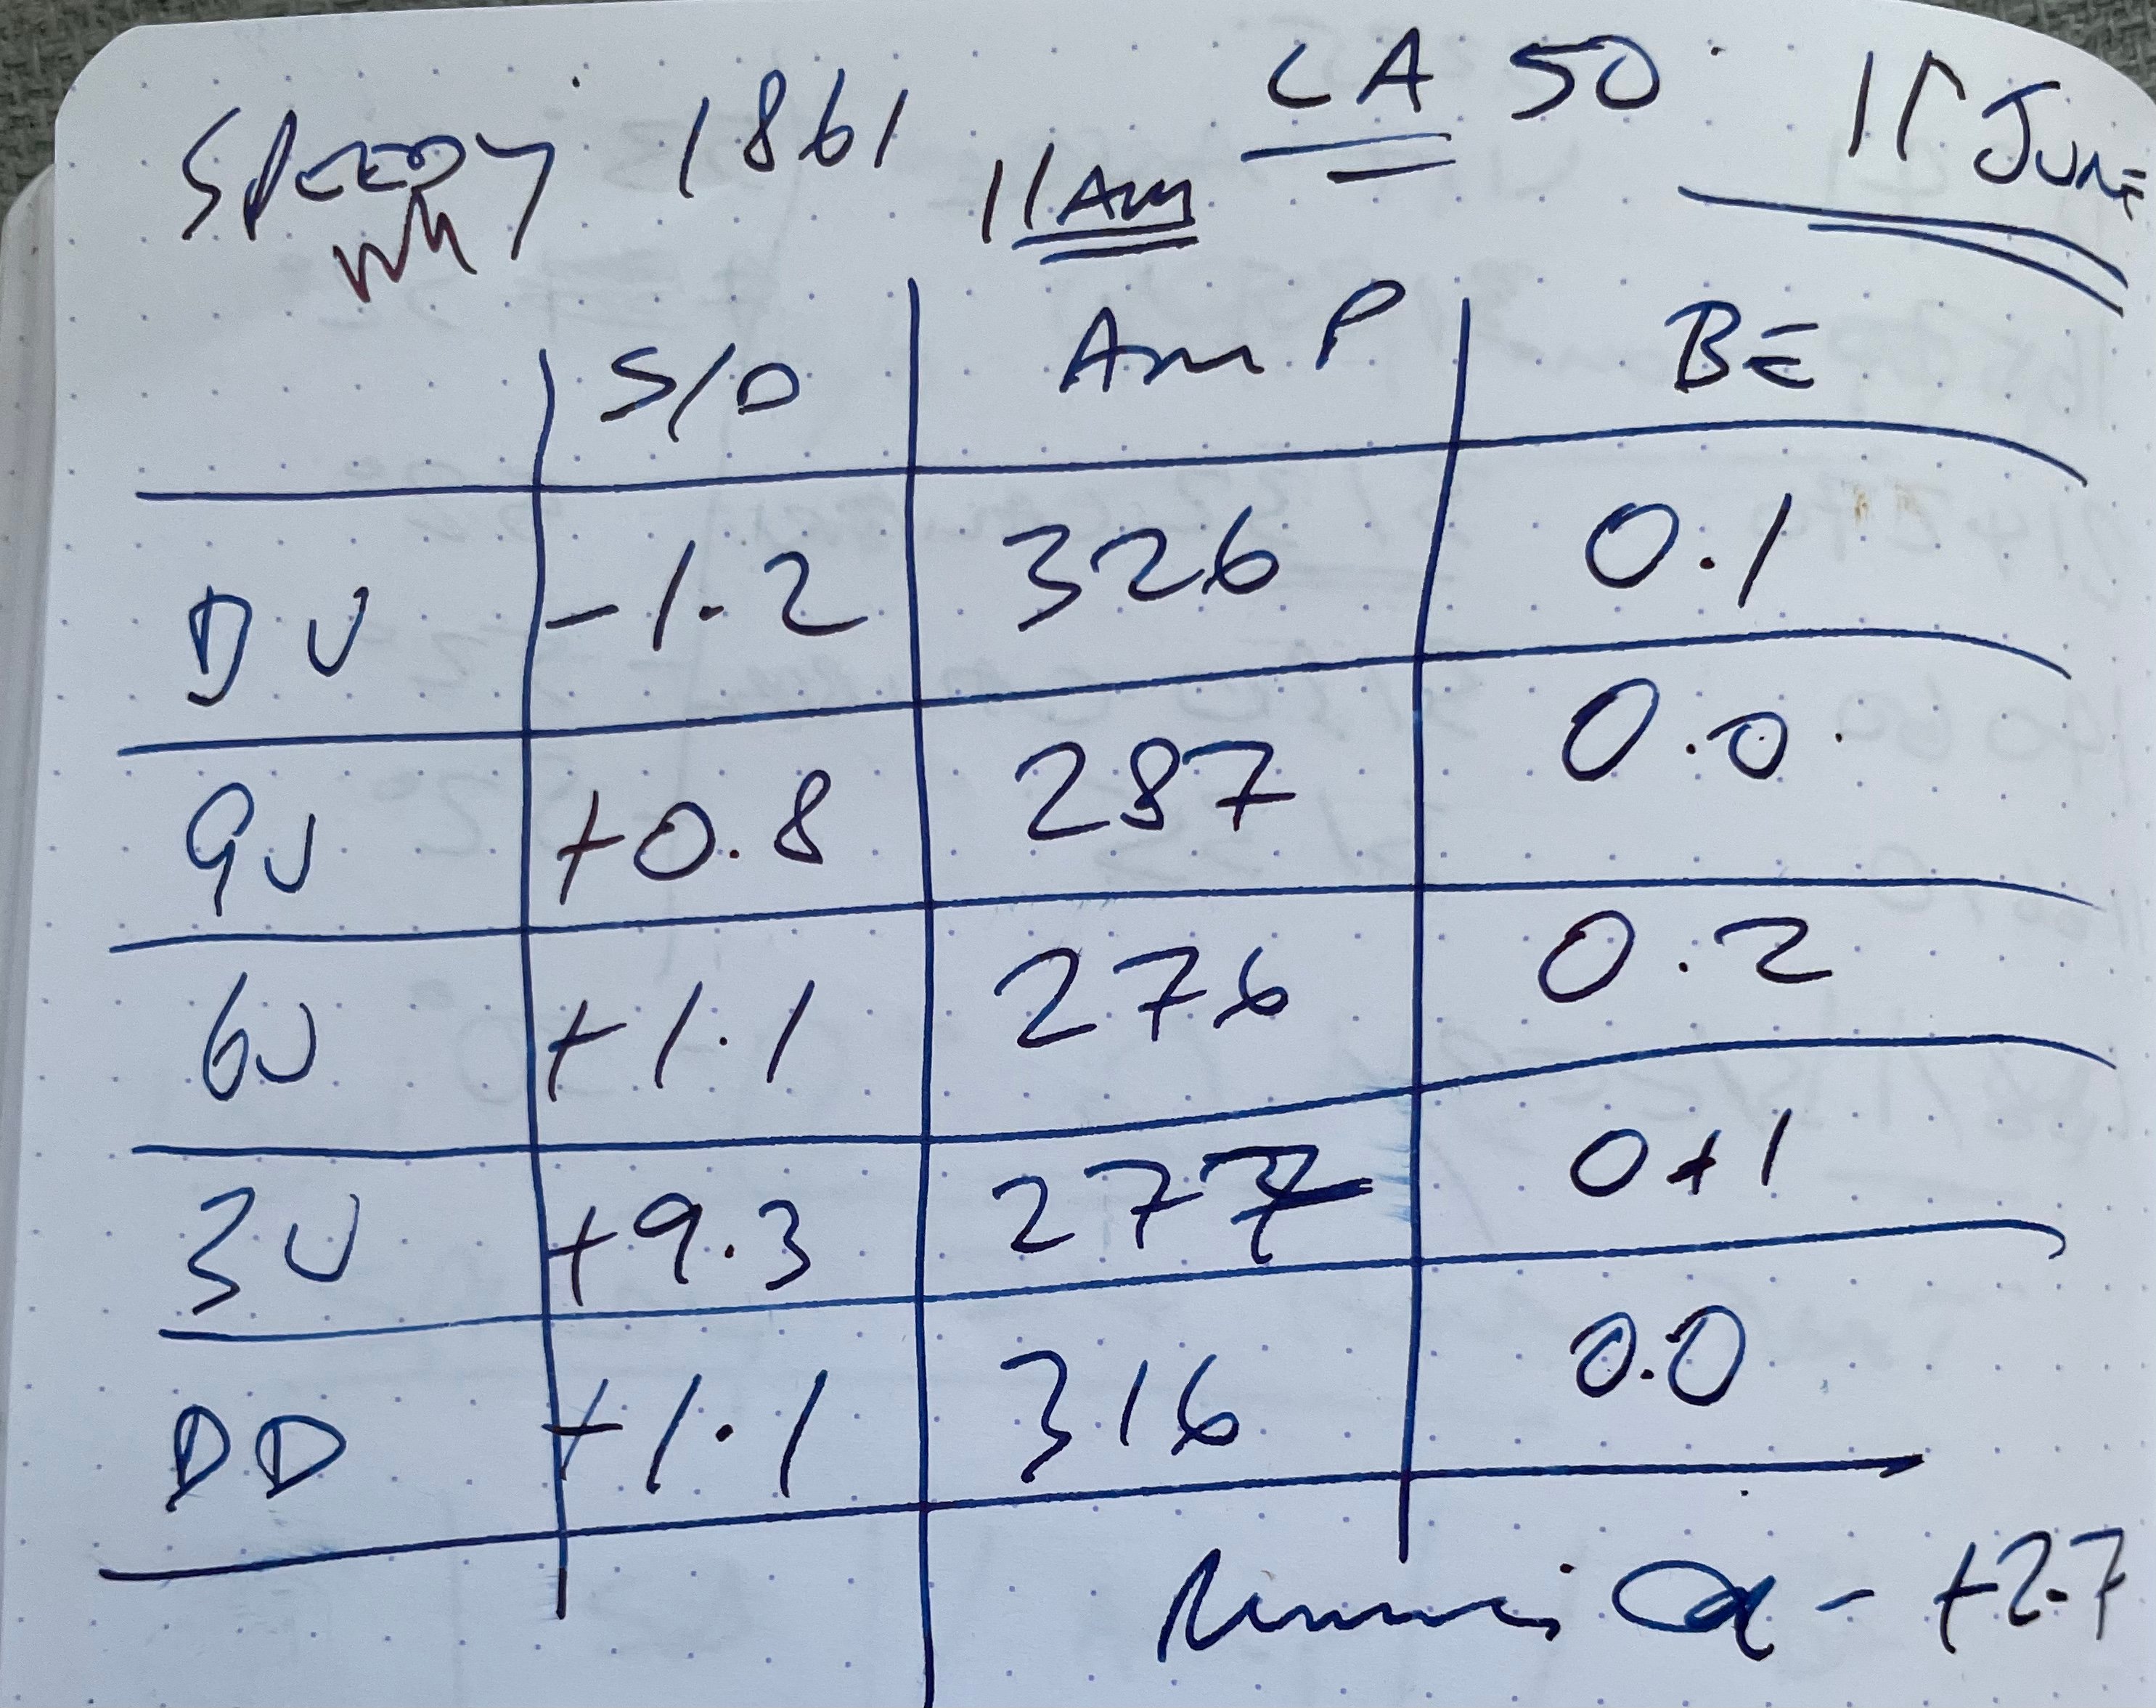 SPEEDY 1861 11AM LA 50 11 JUNE
S/D AMP BE
DU -1.2 326 0.1
9U +0.8 287 0.0
6U +1.1 276 0.2
3U +9.3 277 0.1
DD +1.1 316 0.0
- +2.7